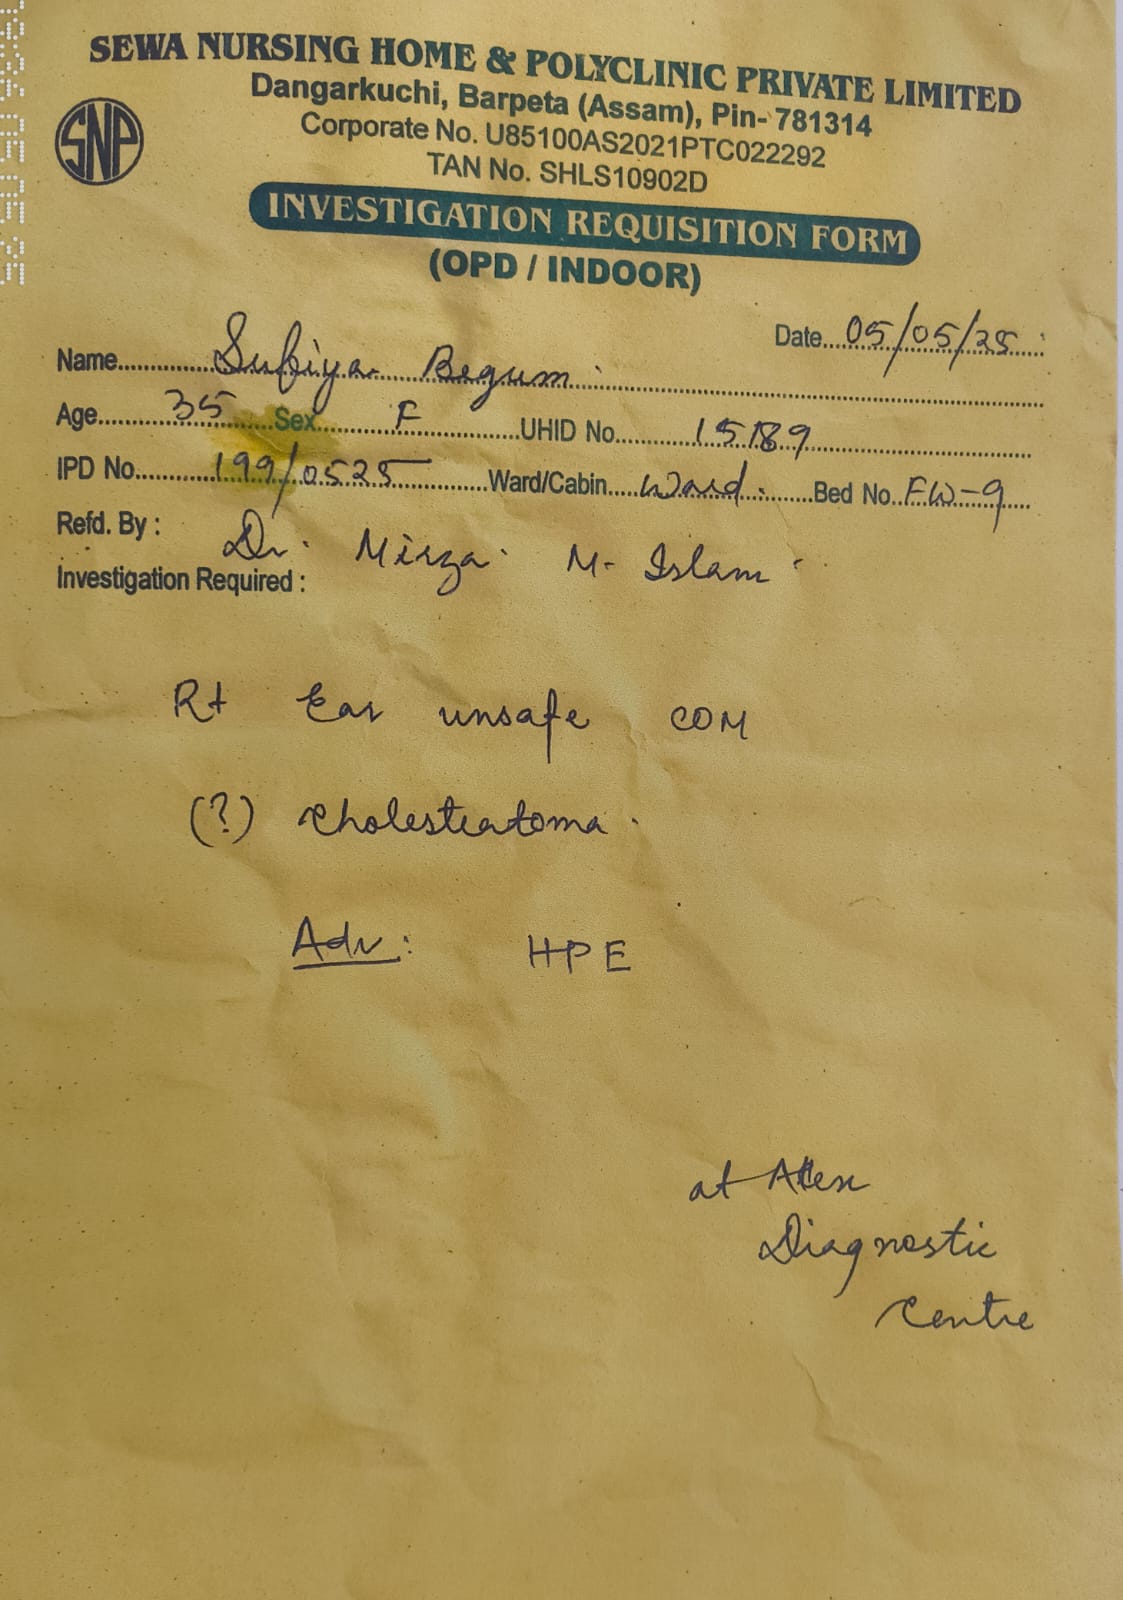 SEWA NURSING HOME & POLYCLINIC PRIVATE LIMITED
Dangarkuchi, Barpeta (Assam), Pin- 781314
SNP
Corporate No. U85100AS2021PTC022292
TAN No. SHLS10902D
INVESTIGATION REQUISITION FORM
(OPD / INDOOR)
Date 05/05/25
Name Sufiya Begum
Age 35 Sex F UHID No. 15189
IPD No. 199/0525 Ward/Cabin Ward. Bed No. FW-9
Refd. By : Dr. Mirza M. Islam
Investigation Required :
Rt Ear unsafe COM
(?) Cholesteatoma.
Adv: HPE
at
Diagnostic
Centre